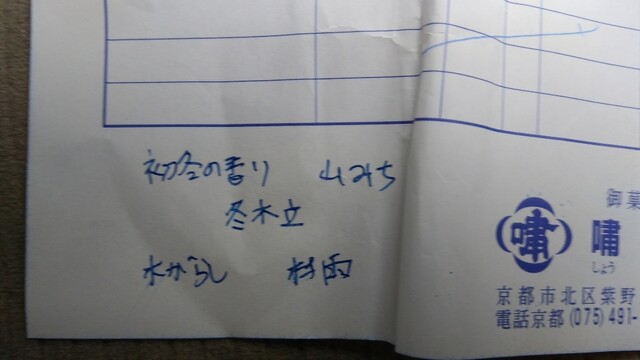 初冬の香り 山みち
冬木立
木からし 村雨
御菓
嘯 嘯
しょう
京都市北区紫野
電話京都(075)491-